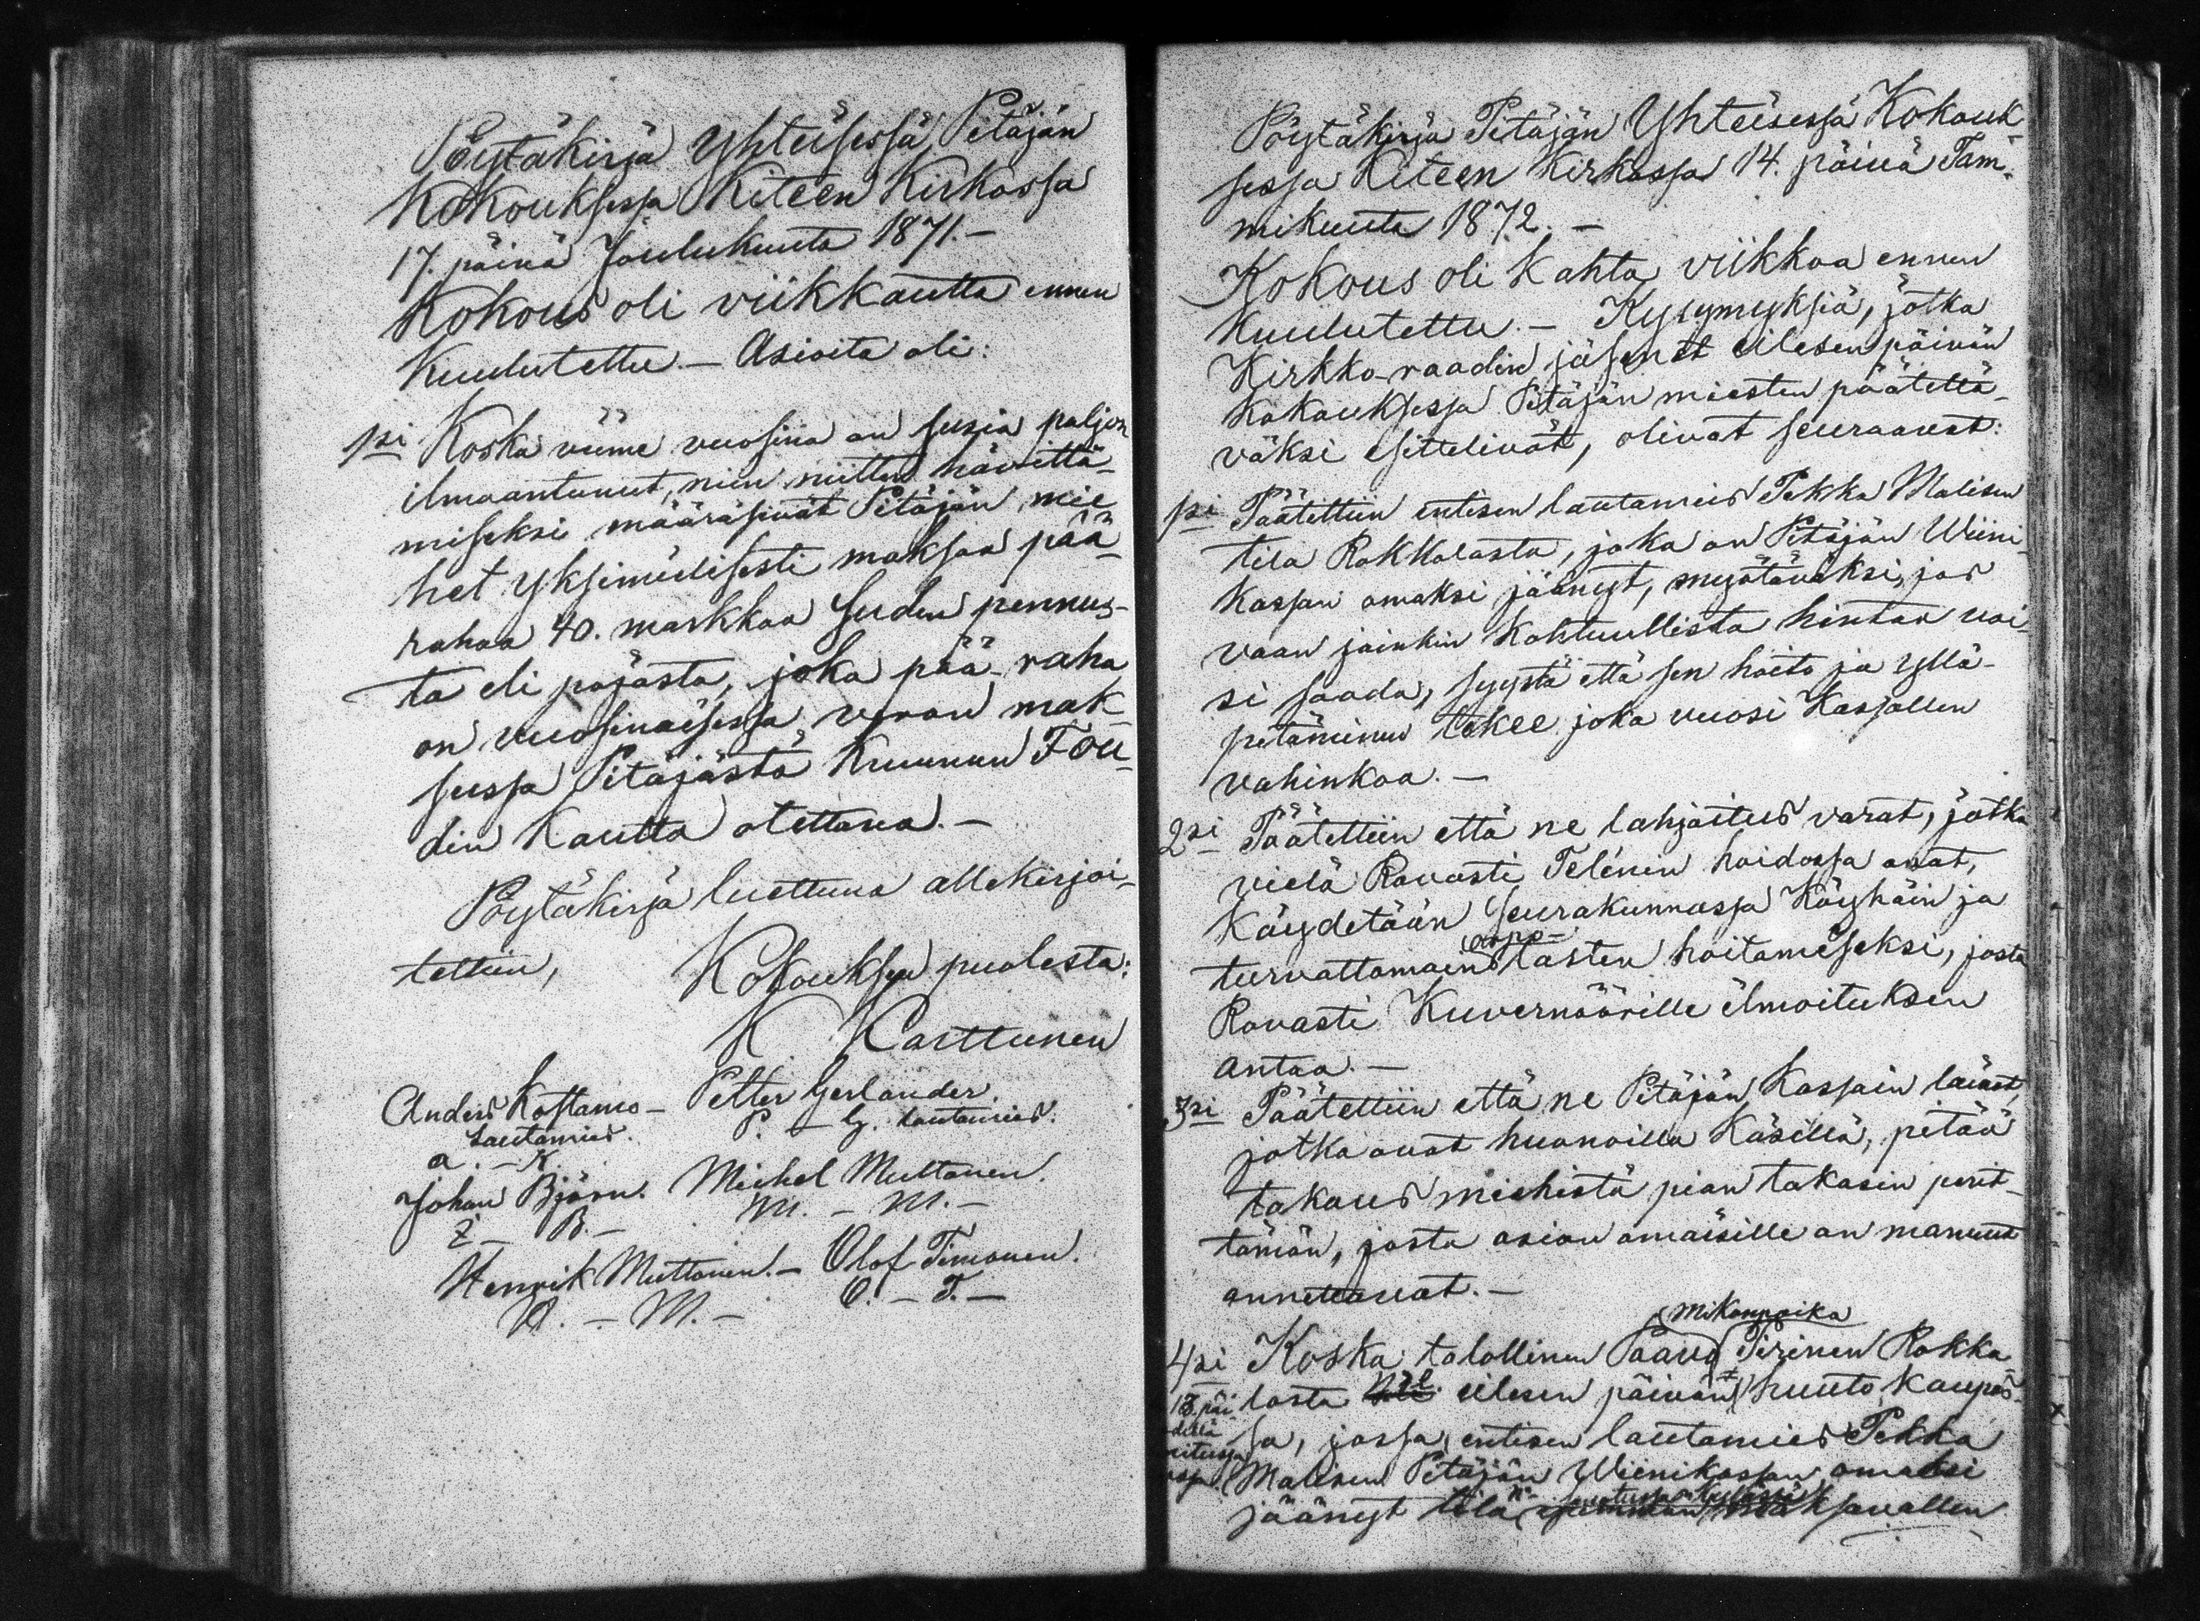 Pöytäkirja Yhteisessä Pitäjän
Kokouksessa Kiteen Kirkossa
17. päivä Joulukuuta 1871.—
Kokous oli viikkautta ennen
Kuulutettu.— Asioita oli:
1si Koska viime vuosina on susia paljon
ilmaantunut, niin niitten hävittä-
miseksi määräsivät Pitäjän mie-
het yksimielisesti maksaa pää-
rahaa 40. markkaa Suden pennus-
ta eli pajasta, joka pää-raha
on vuosinaisessa veron mak-
sussa Pitäjästä Kruunun Fou-
din Kautta otettava.—
Pöytäkirja luettuna allekirjoi-
tettiin,
Kokouksen puolesta:
K Karttunen
Anders Kostamo — Petter Gerlander.
Lautamies. P. — G. Lautamies.
A. — K.
Johan Björn. Michel Muttonen.
I — B. — M. — M. —
Henrik Muttonen. — Olof Timonen.
H. — M. — O. — T. —
Pöytäkirja Pitäjän Yhteisessä Kokouk-
sessa Kiteen Kirkossa 14. päivä Tam-
mikuuta 1872. —
Kokous oli Kahta viikkoa ennen
Kuulutettu. — Kysymyksiä, jotka
Kirkko-raadin jäsenet eilesen päivän
Kokouksessa Pitäjän miesten päätettä-
väksi esittelivät, olivat seuraavat:
1si Päätettiin entisen lautamies Pekka Malisen
tila Rokkalasta, joka on Pitäjän Wiini-
Kassan omaksi jäänyt, myötäväksi, jos
vaan joinkin Kohtuullista hintaa voi-
si saada, syystä että sen hoito ja yllä-
pitäminen tekee joka vuosi Kassallen
vahinkoa. —
2si Päätettiin että ne lahjoitus varat, jotka
vielä Rovasti Telénin hoidossa ovat,
Käydetään Seurakunnassa Köyhäin ja
orpo-
turvattomain lasten hoitamiseksi, josta
Rovasti Kuvernöörille ilmoituksen
antaa. —
3si Päätettiin että ne Pitäjän Kassain lainat,
jotka ovat huonoilla Käsillä, pitää
takaus miehistä pian takasin perit-
tämän, josta asian omaisille on manuut
annettavat. —
Mikonpoika
4si Koska talollinen Paavo Pirinen Rokka
lasta eilesen päivän huuto Kaupas-
sa, jossa entisen lautamies Pekka
Malisen Pitäjän Wiinikassan omaksi
jäänyt tila maksavallen